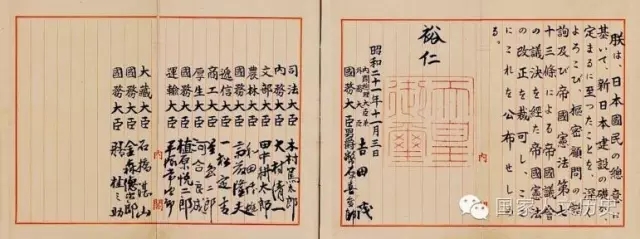 朕は、日本國民の總意に
基いて、新日本建設の礎が、
定まるに至つたことを、深く
よろこび、樞密顧問の諮
詢及び帝國憲法第七
十三條による帝國議會
の議決を経た帝國憲法
の改正を裁可し、ここ
にこれを公布せしめ
る。
裕仁
天皇御璽
昭和二十一年十一月三日
内閣總理大臣兼
外務大臣
吉田茂
國務大臣 男爵 幣原喜重郎
司法大臣 木村篤太郎
内務大臣 大村清一
文部大臣 田中耕太郎
農林大臣 和田博雄
國務大臣 斎藤隆夫
逓信大臣 一松定吉
商工大臣 星島二郎
厚生大臣 河合良成
國務大臣 植原悦二郎
運輸大臣 平塚常次郎
大藏大臣 石橋湛山
國務大臣 金森德次郎
國務大臣 膳桂之助
内閣
内閣
国家人文历史